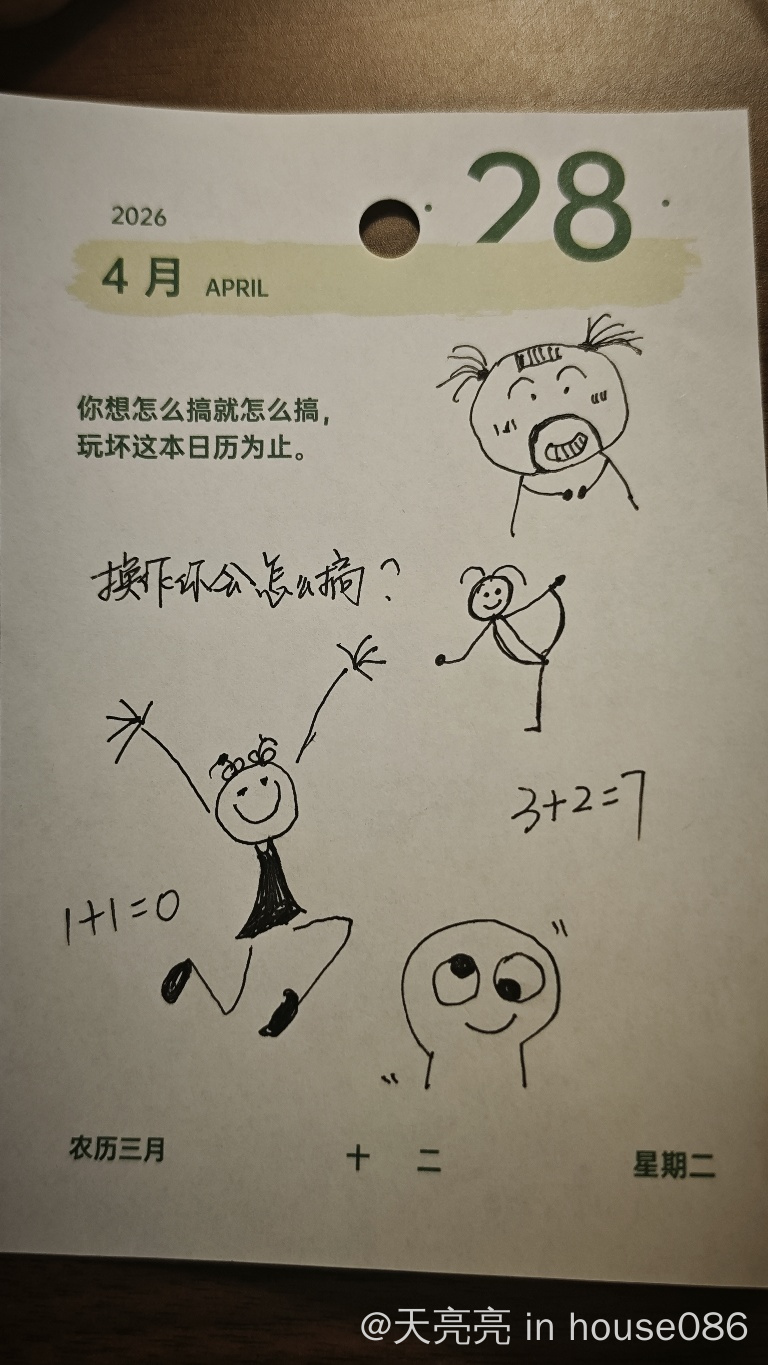 2026
28
4月 APRIL
你想怎么搞就怎么搞，
玩坏这本日历为止。
换作你会怎么搞？
3+2=7
1+1=0
农历三月 十二 星期二
@天亮亮 in house086